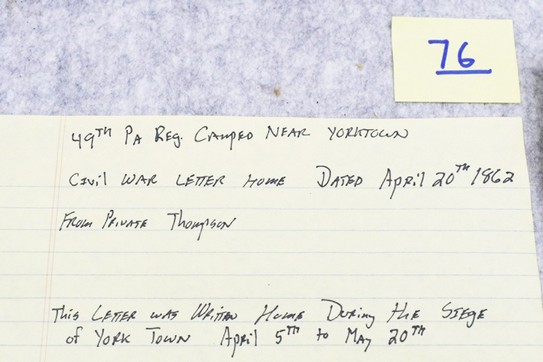 76
49TH PA Reg. Camped Near Yorktown
Civil War Letter Home Dated April 20TH 1862
From Private Thompson
This Letter was Written Home During the Siege
of York Town April 5TH to May 20TH